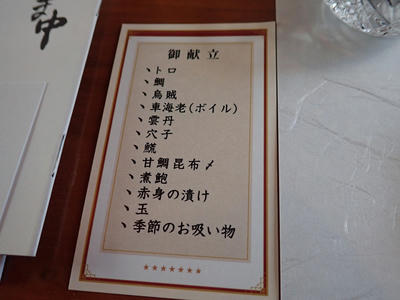 御献立
、トロ
、鯛
、烏賊
、車海老(ボイル)
、雲丹
、穴子
、鱚
、甘鯛昆布〆
、煮鮑
、赤身の漬け
、玉
、季節のお吸い物